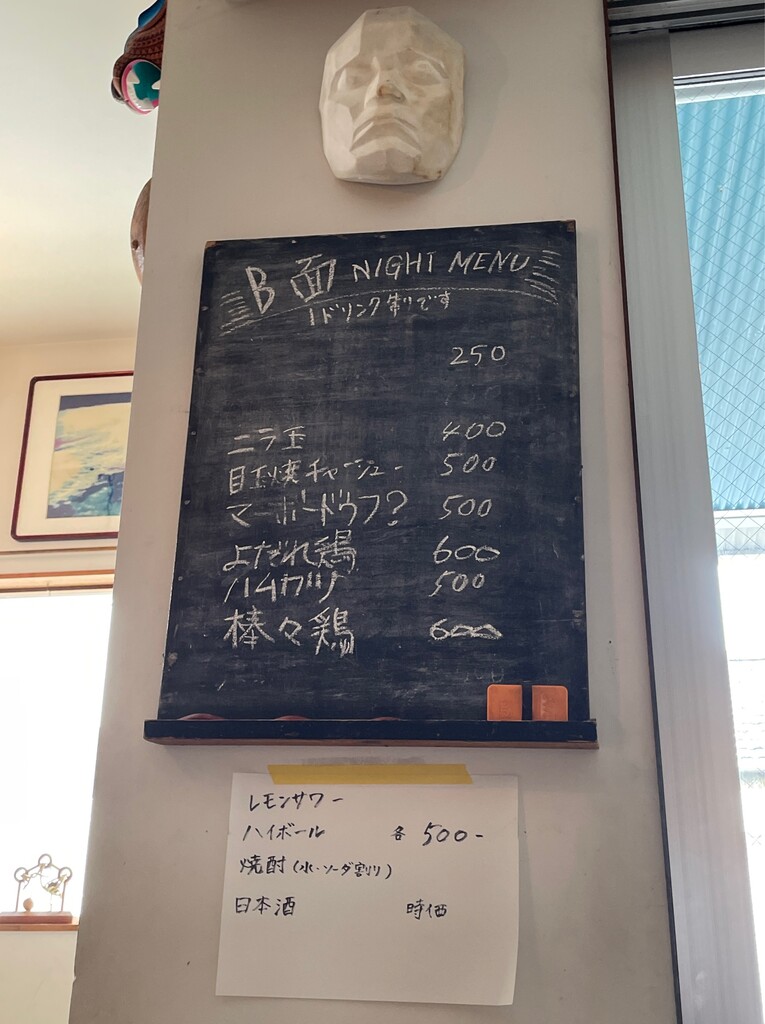 B面 NIGHT MENU
1ドリンク制です
250
ニラ玉 400
目玉焼チャーシュー 500
マーボードウフ? 500
よだれ鶏 600
ハムカツ 500
棒々鶏 600
レモンサワー
ハイボール 各 500-
焼酎(水・ソーダ割り)
日本酒 時価